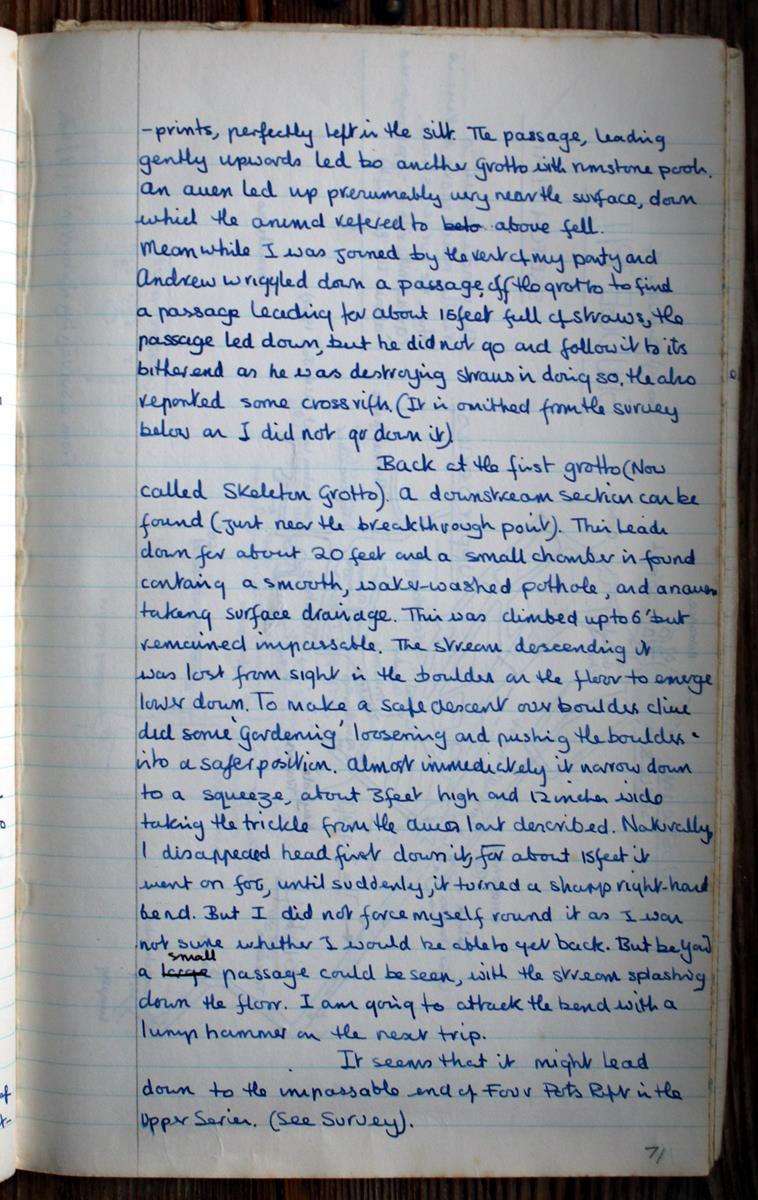 -prints, perfectly left in the silt. The passage, leading
gently upwards led to another grotto with rimstone pools.
An aven led up presumably very near the surface, down
which the animal refered to above fell.
Meanwhile I was joined by the rest of my party and
Andrew wriggled down a passage, off the grotto to find
a passage leading for about 15feet full of straws, the
passage led down, but he did not go and follow it to its
bitter end as he was destroying straws in doing so. He also
reported some cross rifts. (It is omitted from the survey
below as I did not go down it)
Back at the first grotto (Now
called Skeleton Grotto). A downstream section can be
found (just near the breakthrough point). This leads
down for about 20 feet and a small chamber is found
containg a smooth, water-washed pothole, and an aven
takeng surface drainage. This was climbed up to 6' but
remained impassable. The stream descending it
was lost from sight in the boulders on the floor to emerge
lower down. To make a safe descent over boulders Clive
did some 'gardening' loosening and pushing the boulders
into a safer position. Almost immediately it narrow down
to a squeeze, about 3feet high and 12 inches wide
taking the trickle from the aven last described. Naturally,
I disappeared head first down it, for about 15feet it
went on for, until suddenly, it turned a sharp right-hand
bend. But I did not force myself round it as I was
not sure whether I would be able to get back. But beyond
a large small passage could be seen, with the stream splashing
down the floor. I am going to attack the bend with a
lump hammer on the next trip.
It seems that it might lead
down to the impassable end of Four Pots Rift in the
Upper Series. (See Survey).
71